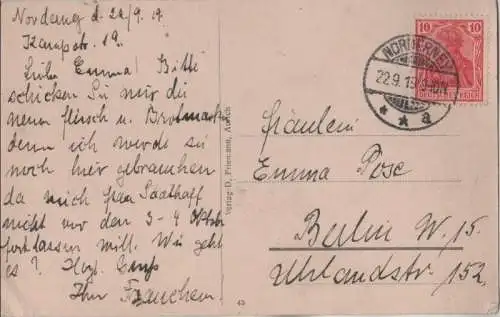 Norderney d. 22/9. 19.
Kampstr. 19.
Liebe Emma! Bitte
schicken Sie mir die
neuen Fleisch u. Brotmarken
denn ich werde sie
noch hier gebrauchen
da mich Frau Saathoff
nicht vor den 3-4 Oktbr
fortlassen will. Wie geht
es? Hrzl.
Ihr
Fräulein
Emma Pose
Berlin W. 15.
Uhlandstr. 152.
Verlag D. Friemann, Aurich
43
10 10
DEUTSCHES REICH
NORDERNEY
22.9.19
* * a